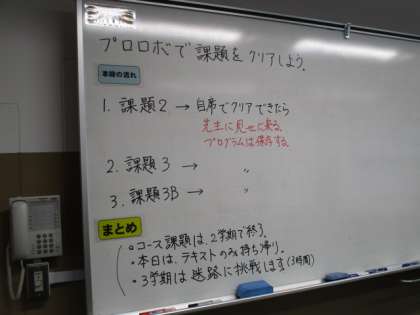 プロロボで課題をクリアしよう。
本時の流れ
1. 課題2 → 自席でクリアできたら
先生に見せに来る
プログラムは保存する
2. 課題3 → 〃
3. 課題3B → 〃
まとめ
・コース課題は、2学期で終う。
・本日は、テキストのみ持ち帰り。
・3学期は迷路に挑戦します(3時間)